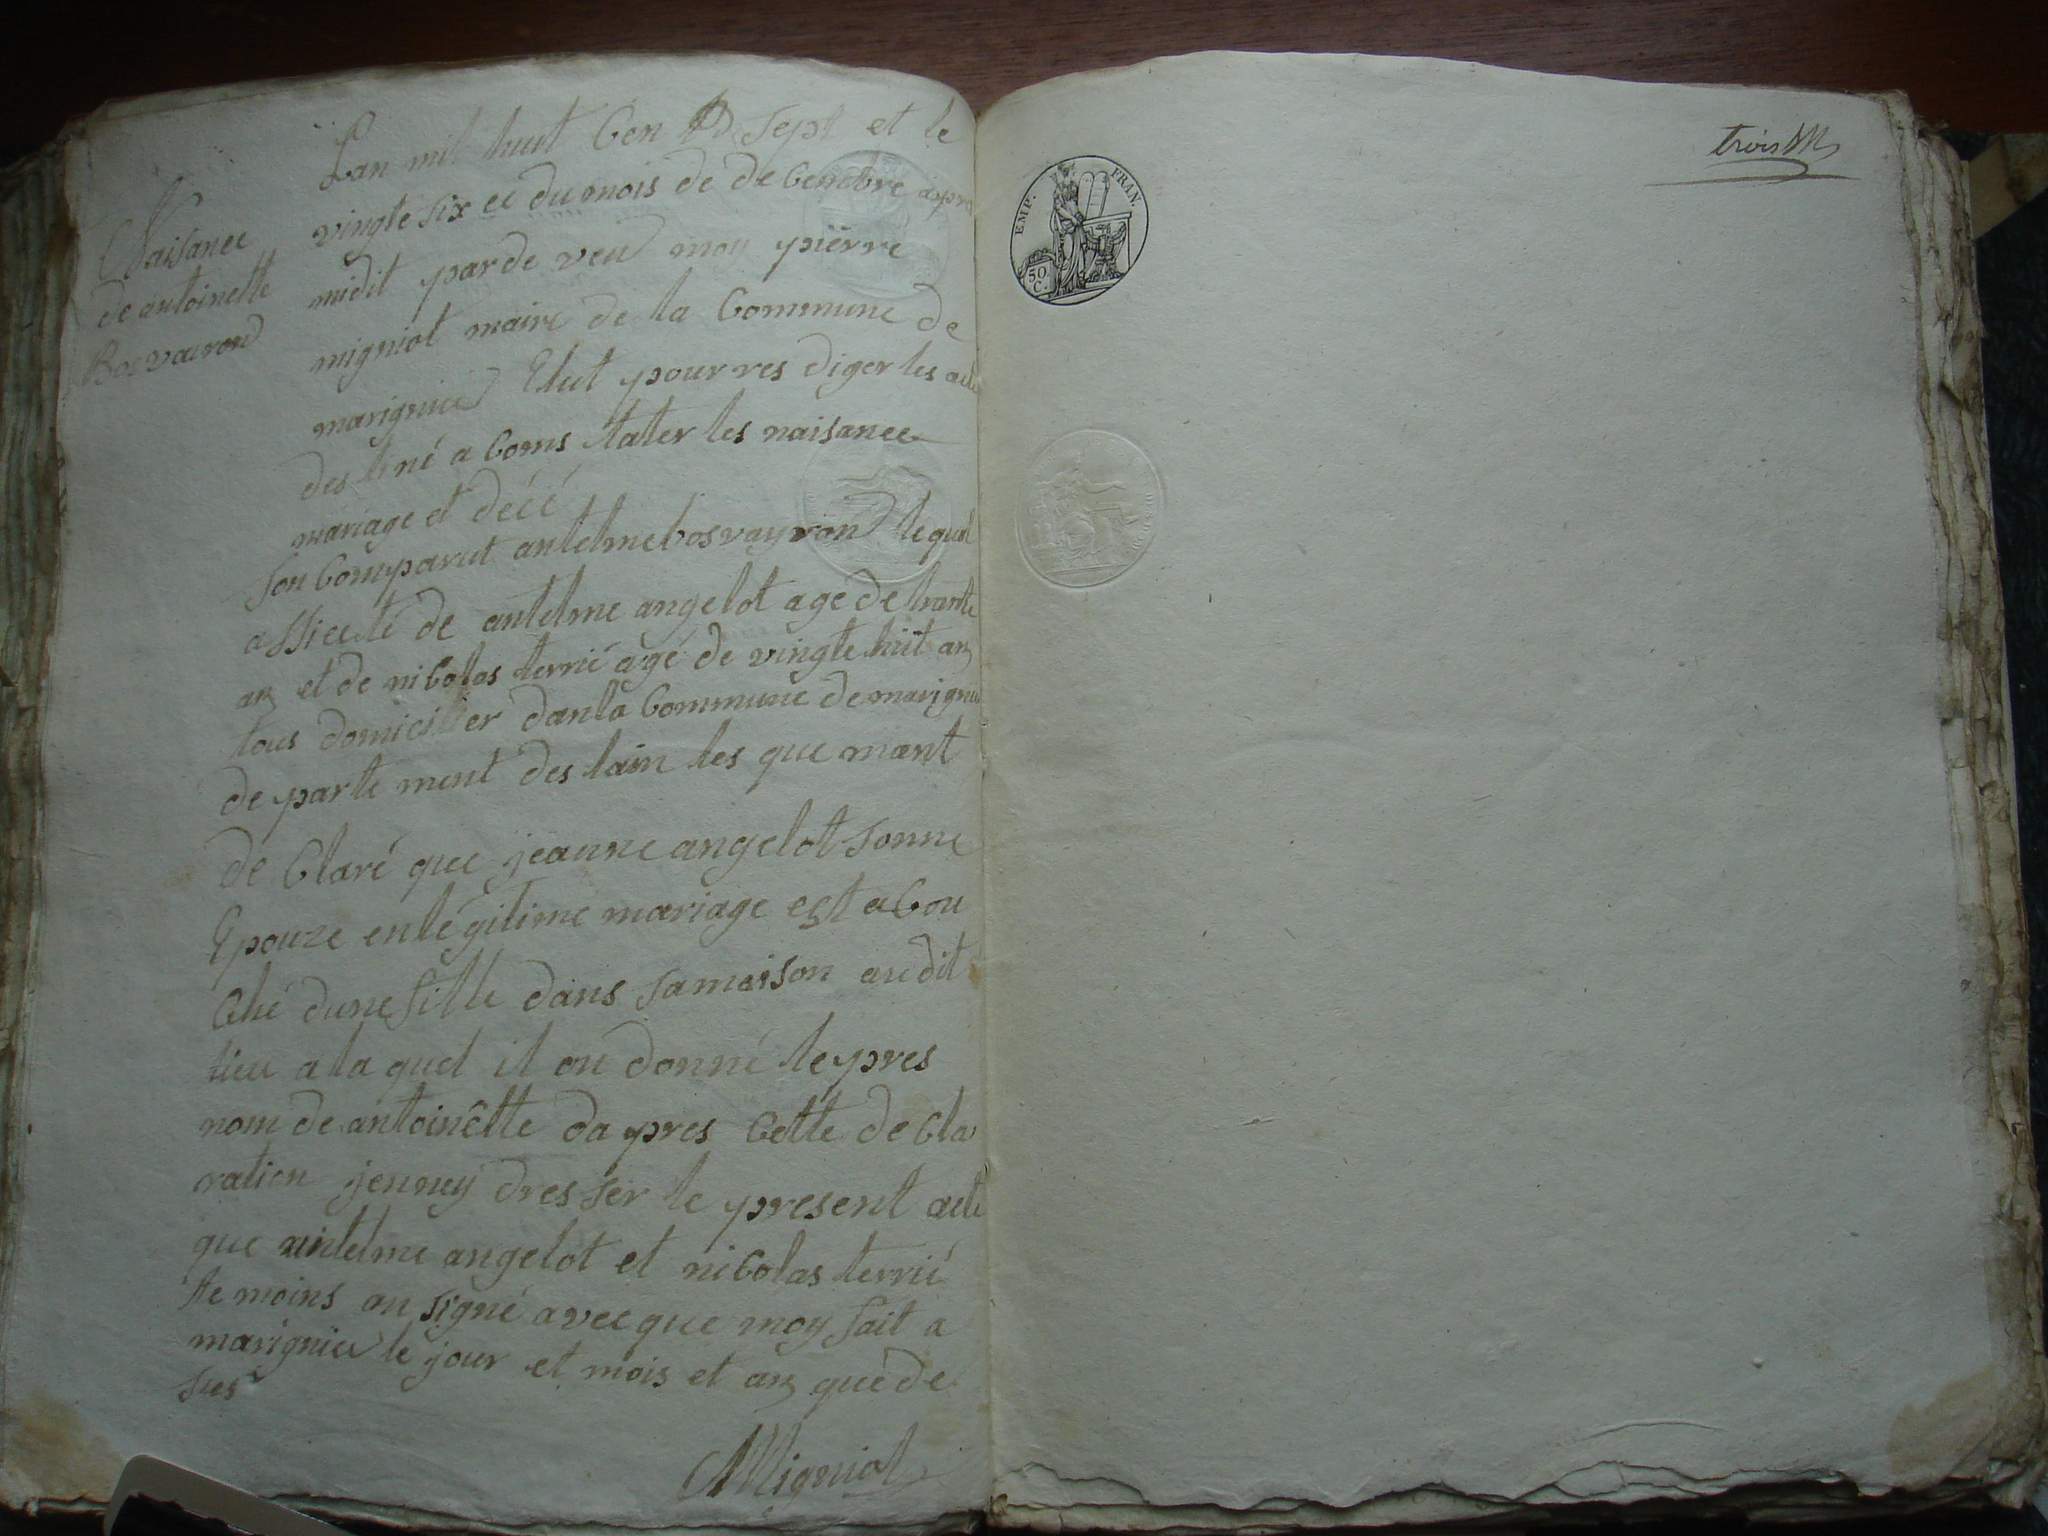 Naisance
de antoinette
Bosvairon
Lan mil huit Cen sept et le
vingte six ec du mois de de Cenebre apre
midit par de veu mou pierre
migniot maire de la Commune de
marignieu Elut pour res diger les acte
des tiné a Coms tater les naisance
mariage et décé
son Comparut antelme bosvayron le quel
assiecté de antelme angelot age de trante
an et de niColas terrié agé de vingte huit an
tous domicilier dan la Commune de marignieu
de parte ment des lain les que mant
de Claré que jeanne angelot sonne
Epouze en le gitime mariage est a Cou
Ché dune fille dans sa maison audit
lieu a la quel il on donné le pres
nom de antoinêtte da pres Cette de Cla
ration jenney dres ser le present acte
que antelme angelot et niColas terrié
te moins on signé avec que moy fait a
marignieu le jour et mois et an que de
sues
Migniot
trois
EMP. FRAN.
50
C.